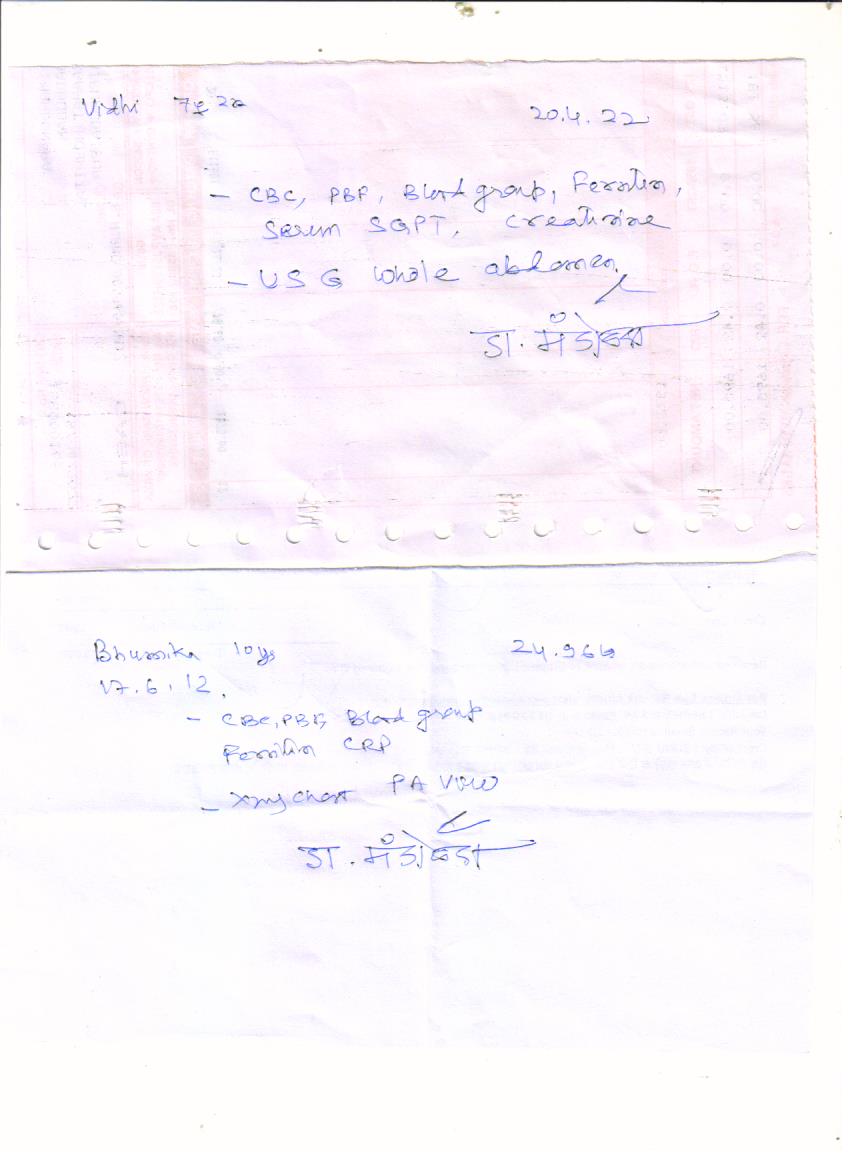 Vidhi 20.4.22
- CBC, PBF, Blood group, Ferritin,
Serum SGPT, Creatinine
- USG whole abdomen
डा.
Bhumika 10ys
17.6.12.
- CBC, PBF, Blood group
Ferritin CRP
- Xray chest PA view
डा.